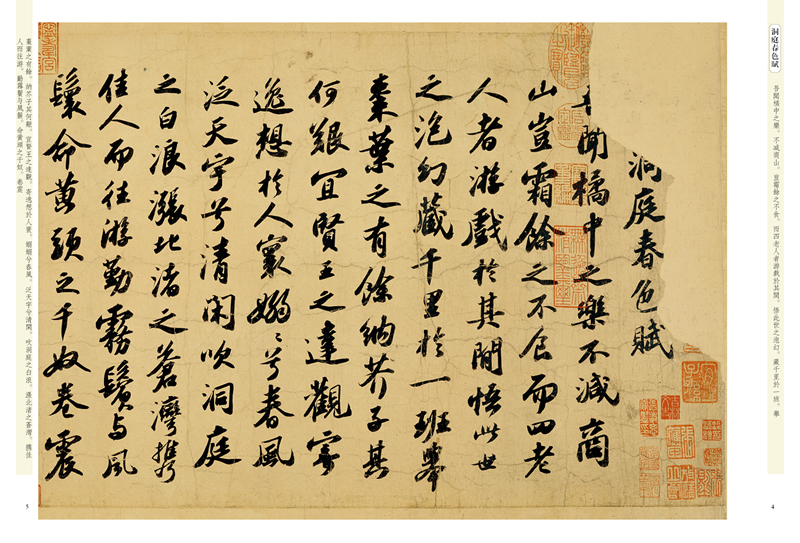 洞庭春色賦
吾聞橘中之樂。不减商山。豈霜餘之不食。而四老人者游戲於其間。悟此世之泡幻。藏千里於一班。舉
4
洞庭春色賦
聞橘中之樂不减商
山豈霜餘之不食而四老
人者游戲於其間悟此世
之泡幻藏千里於一班舉
棗葉之有餘納芥子其
何艱宜賢王之達觀寄
逸想於人寰嫋〻兮春風
泛天宇兮清閑吹洞庭
之白浪漲北渚之蒼灣攜
佳人而往游勤霧鬢与風
鬟命黄頭之千奴卷震
棗葉之有餘。納芥子其何艱。宜賢王之達觀。寄逸想於人寰。嫋嫋兮春風。泛天宇兮清閑。吹洞庭之白浪。漲北渚之蒼灣。携佳
人而往游。勤霧鬢與風鬟。命黄頭之千奴。卷震
5